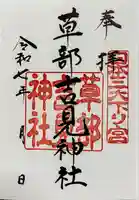 奉拝
日本三大下り宮
草部
吉見
神社
草部吉見神社
令和七年 月 日